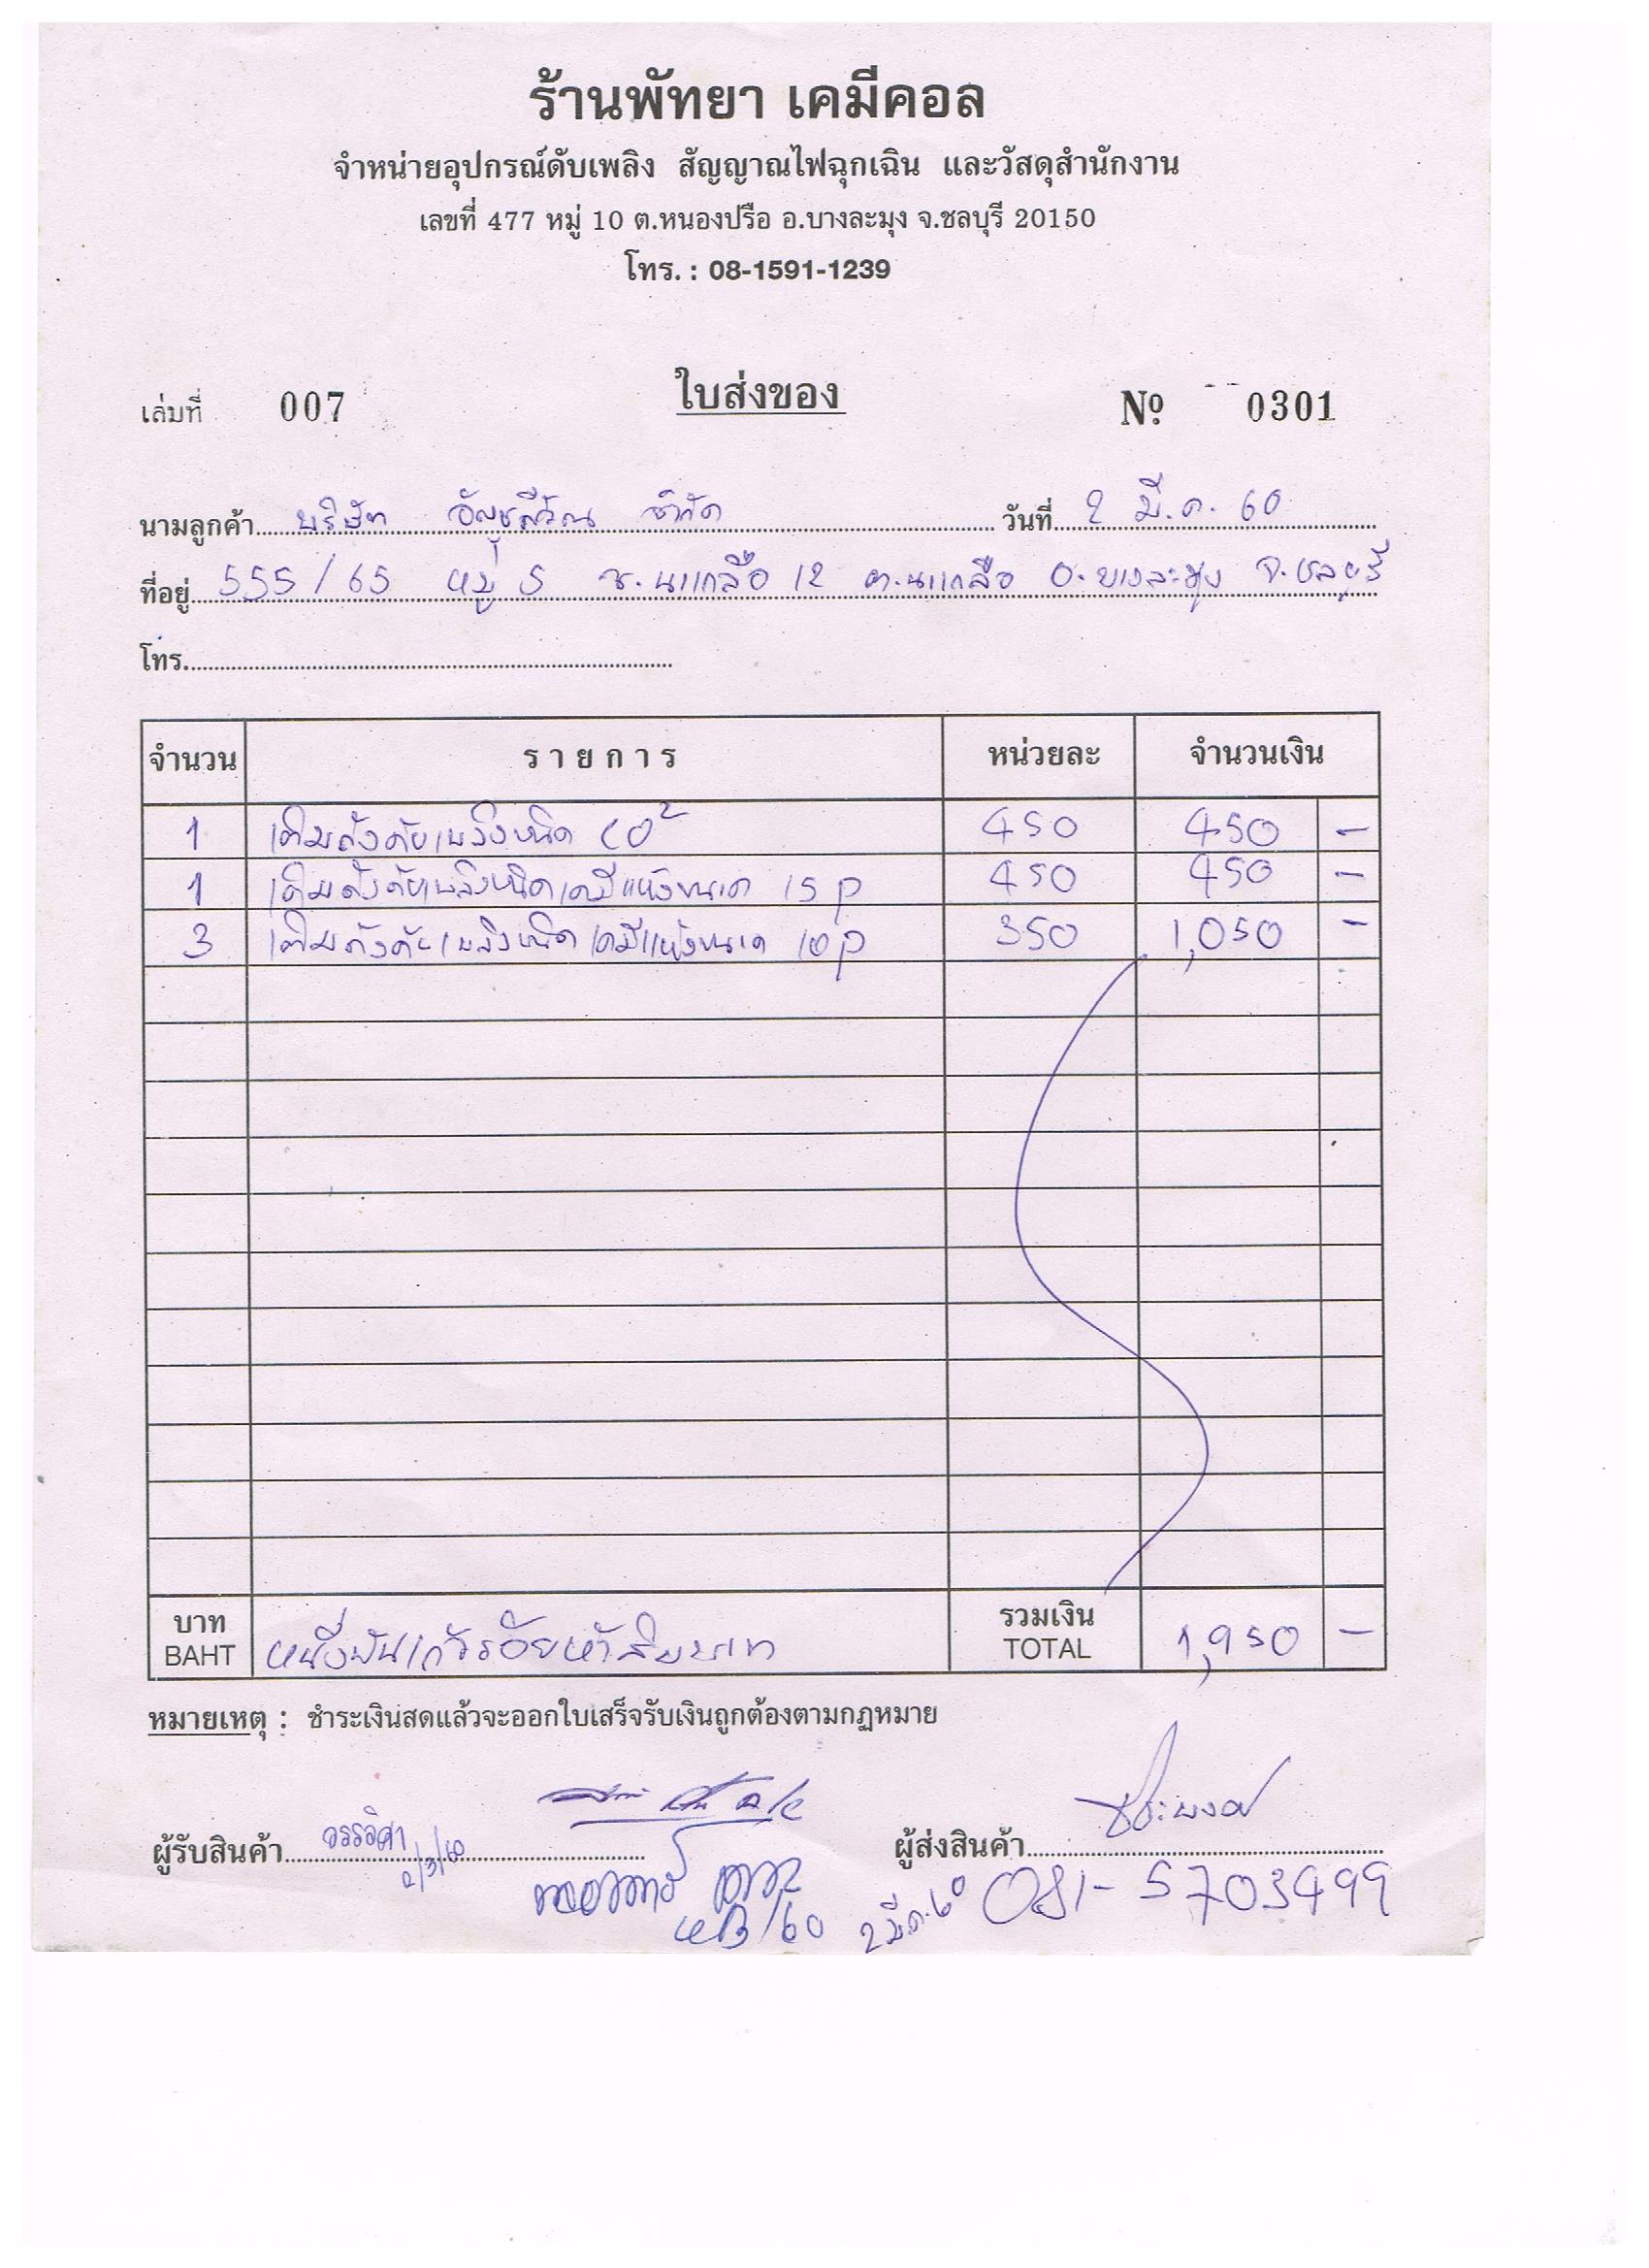 ร้านพัทยา เคมีคอล
จำหน่ายอุปกรณ์ดับเพลิง สัญญาณไฟฉุกเฉิน และวัสดุสำนักงาน
เลขที่ 477 หมู่ 10 ต.หนองปรือ อ.บางละมุง จ.ชลบุรี 20150
โทร. : 08-1591-1239
เล่มที่ 007 ใบส่งของ Nº 0301
นามลูกค้า บริษัท อัญชลีวัณ จำกัด วันที่ 2 มี.ค. 60
ที่อยู่ 555/65 หมู่ 5 ซ.นาเกลือ 12 ต.นาเกลือ อ.บางละมุง จ.ชลบุรี
โทร.
จำนวน รายการ หน่วยละ จำนวนเงิน
1 เติมถังดับเพลิงชนิด CO² 450 450 -
1 เติมถังดับเพลิงชนิดเคมีแห้งขนาด 15 p 450 450 -
3 เติมถังดับเพลิงชนิดเคมีแห้งขนาด 10 p 350 1,050 -
บาท หนึ่งพันเก้าร้อยห้าสิบบาท รวมเงิน 1,950 -
BAHT TOTAL
หมายเหตุ : ชำระเงินสดแล้วจะออกใบเสร็จรับเงินถูกต้องตามกฏหมาย
ผู้รับสินค้า 2/3/60 ผู้ส่งสินค้า
2 มี.ค. 60 081-5703499